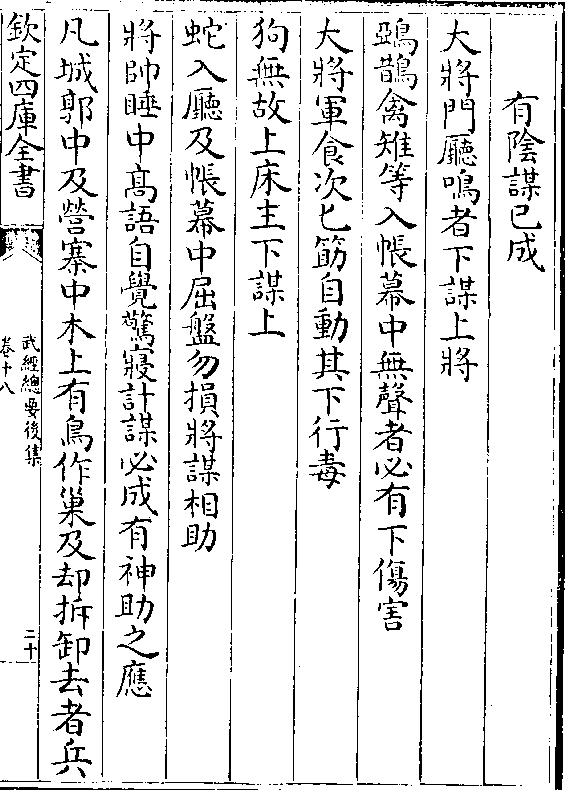 有陰謀已成
大將門廳鳴者下謀上將
鵶鵲禽雉等入帳幕中無聲者必有下傷害
大將軍食次匕筯自動其下行毒
狗無故上床主下謀上
蛇入廳及帳幕中屈盤勿損將謀相助
將帥睡中高語自覺驚寤計謀必成有神助之應
凡城郭中及營寨中木上有鳥作巢及却拆卸去者兵
欽定四庫全書
武經總要後集
卷十八
二十